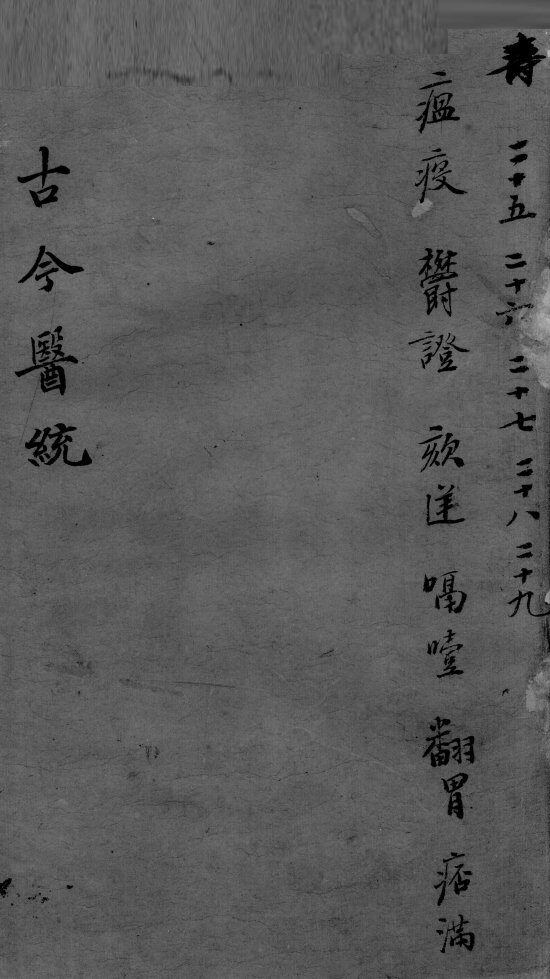 壽 二十五 二十六 二十七 二十八 二十九
瘟疫 鬱證 欬逆 嗝噎 翻胃 痞滿
古今醫統